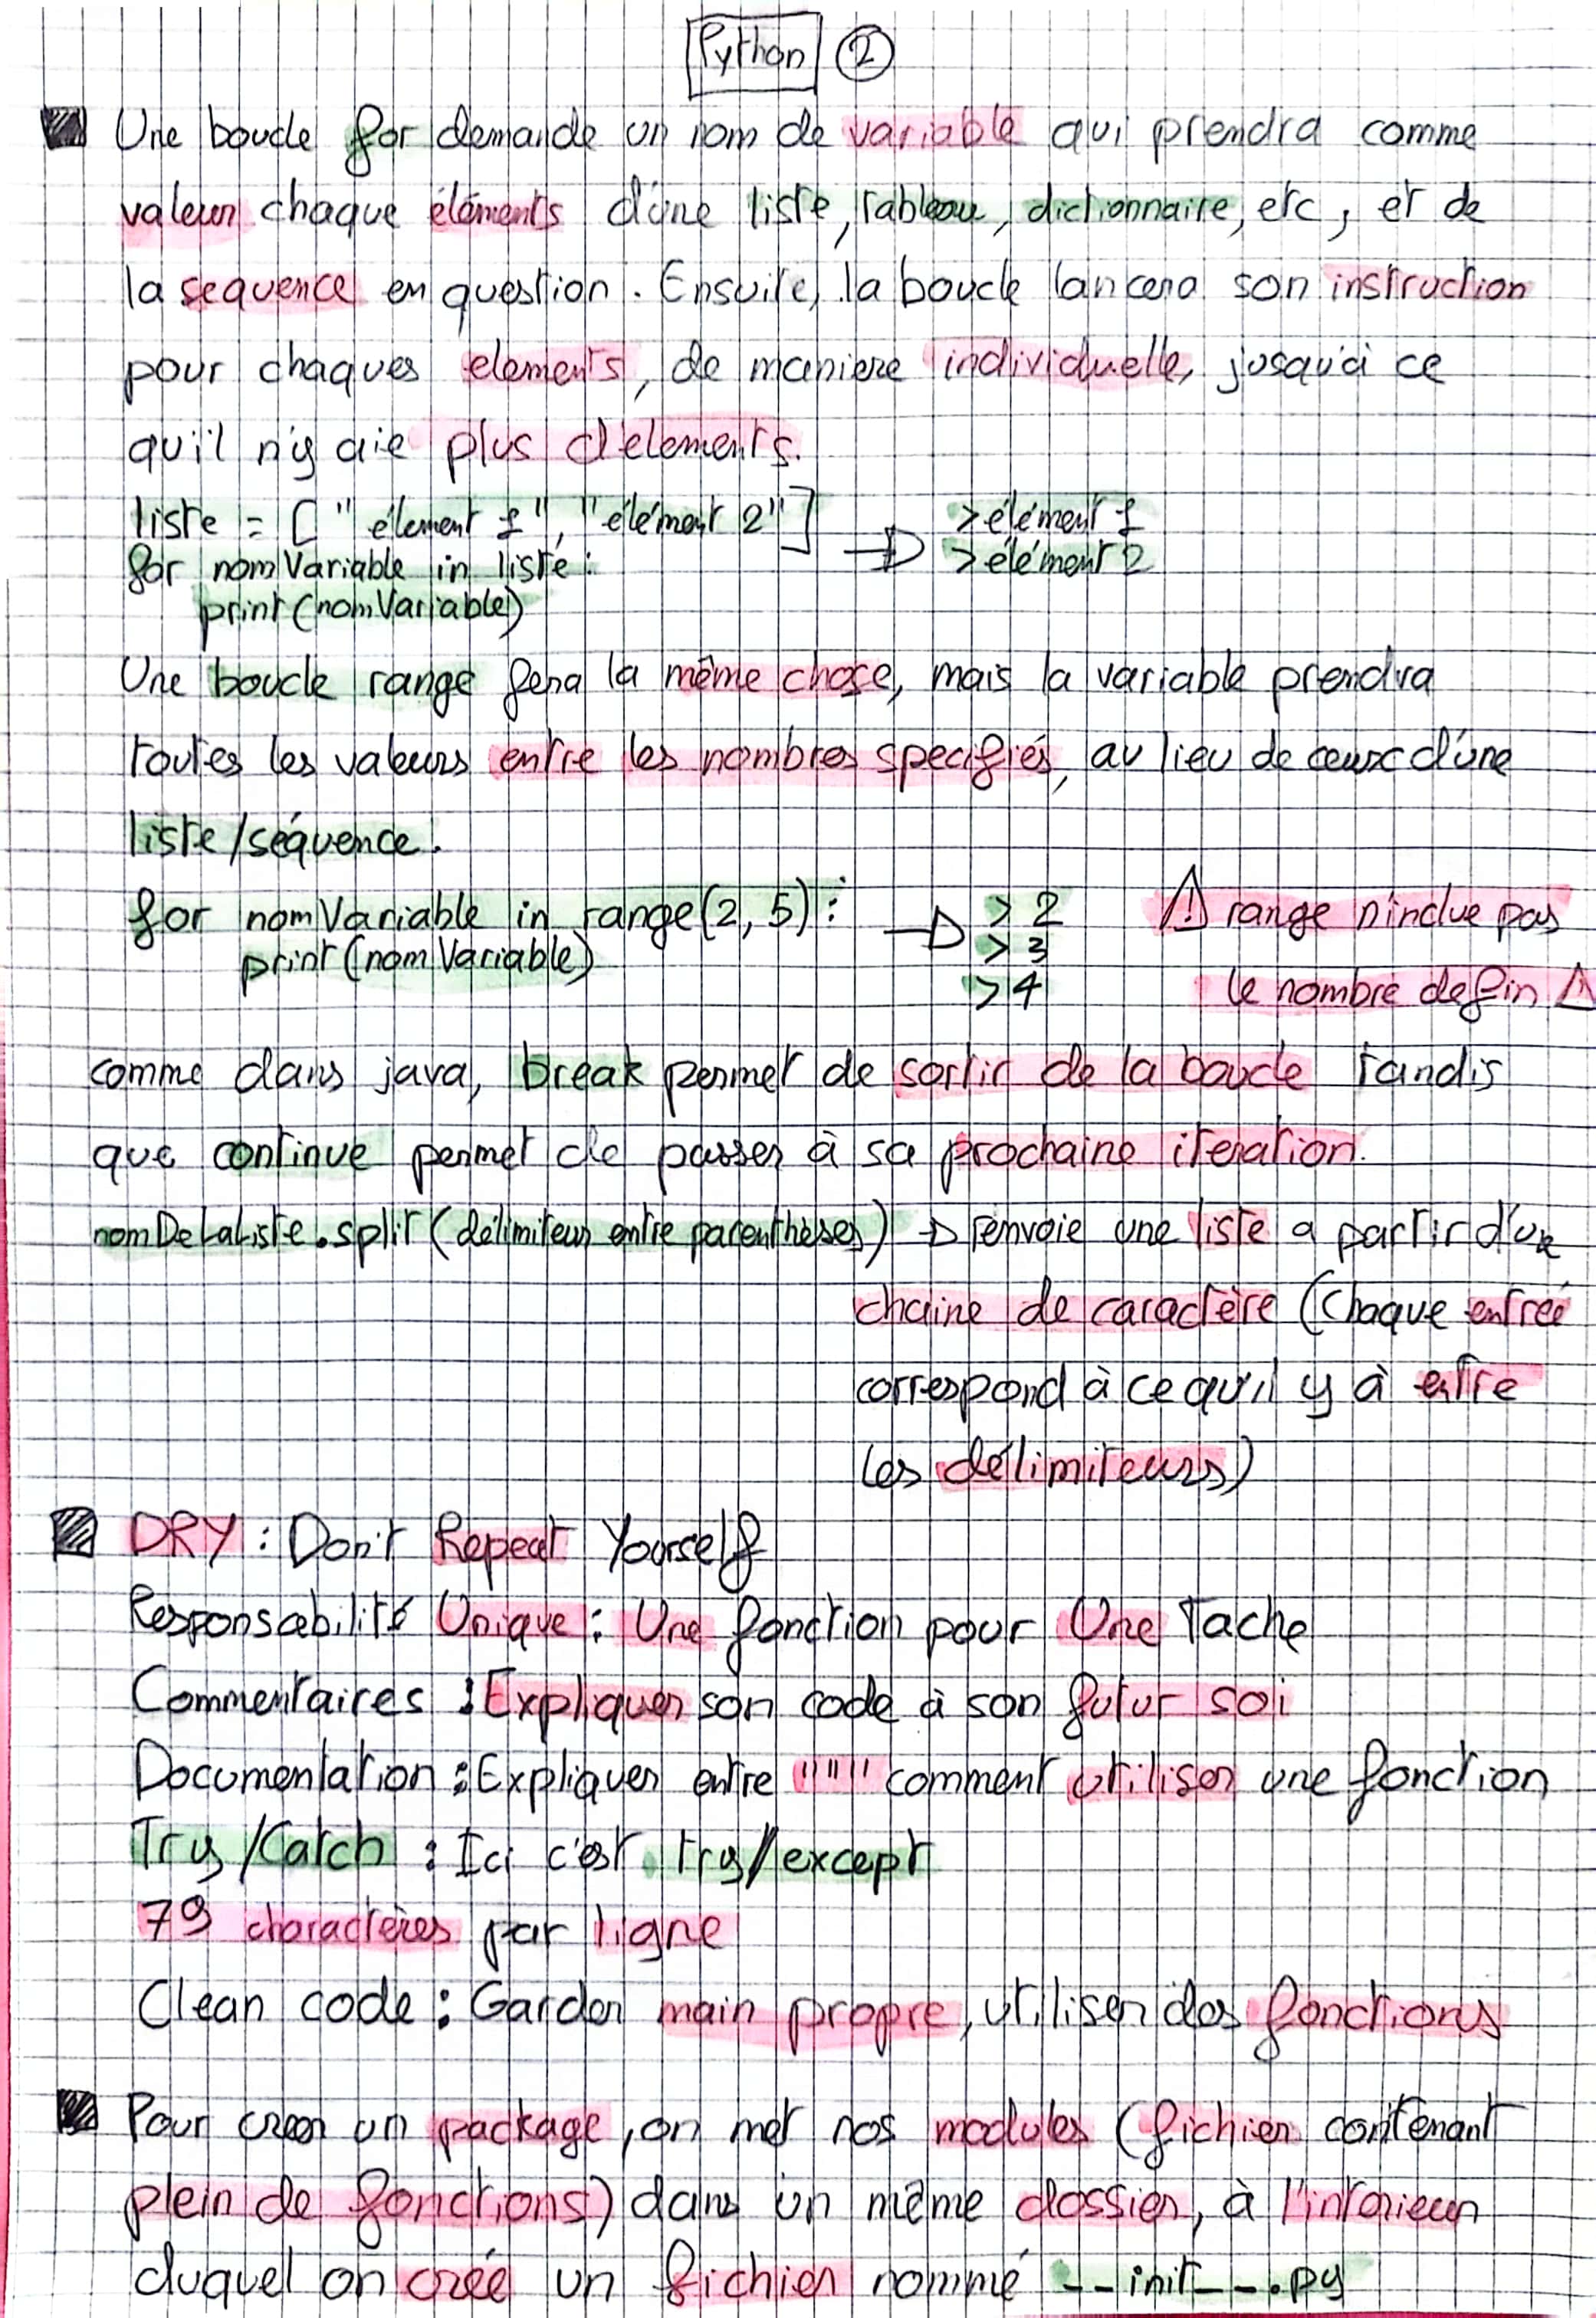 Python ②
Une boucle for demande un nom de variable qui prendra comme
valeur chaque éléments d'une liste, tableau, dictionnaire, etc, et de
la sequence en question. Ensuite, la boucle lancera son instruction
pour chaques elements, de maniere individuelle, jusqu'à ce
qu'il n'y aie plus d'elements.
liste = ["élement 1", "élément 2"] → >élément 1
for nomVariable in liste: >élément 2
print(nomVariable)
Une boucle range fera la même chose, mais la variable prendra
toutes les valeurs entre les nombres specifiés, au lieu de ceux d'une
liste/séquence.
for nomVariable in range(2, 5): → > 2 ⚠ range n'inclue pas
print(nomVariable) > 3
> 4 le nombre de fin ⚠
comme dans java, break permet de sortir de la boucle tandis
que continue permet de passer à sa prochaine iteration.
nomDeLaListe.split(délimiteur entre parenthèses) → renvoie une liste a partir d'une
chaine de caractère (Chaque entreé
correspond à ce qu'il y à entre
les délimiteurs)
DRY : Don't Repeat Yourself
Responsabilité Unique : Une fonction pour Une Tache
Commentaires : Expliquer son code à son futur soi
Documentation : Expliquer entre """ comment utiliser une fonction
Try/Catch : Ici c'est try/except
79 charactères par ligne
Clean code : Garder main propre, utiliser des fonctions
Pour creer un package, on met nos modules (fichier contenant
plein de fonctions) dans un même dossier, à l'interieur
duquel on créé un fichier nommé __init__.py